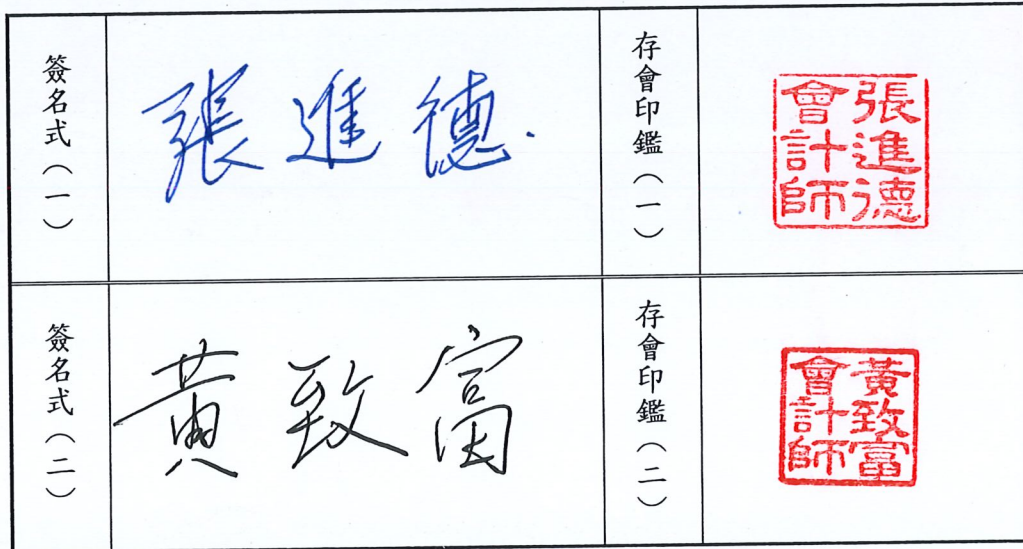 簽名式（一）
張進德.
存會印鑑（一）
張進德
會計師
簽名式（二）
黃致富
存會印鑑（二）
黃致富
會計師